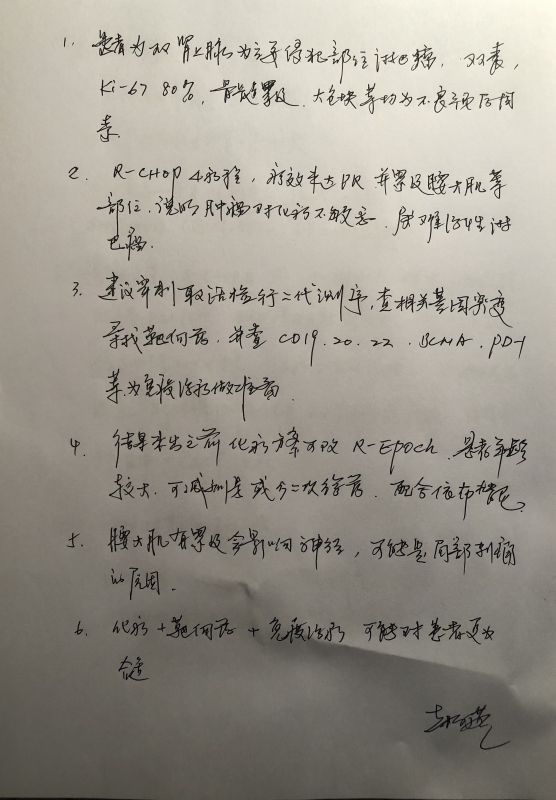 1. 患者为双肾上腺为主要侵犯部位淋巴瘤，双表，
Ki-67 80%，骨髓累及，大包块等均为不良预后因
素。
2. R-CHOP 4疗程，疗效未达PR 并累及腰大肌等
部位，说明肿瘤对化疗不敏感，属难治性淋
巴瘤。
3. 建议穿刺取活检行二代测序，查相关基因突变
寻找靶向药，并查 CD19. 20. 22. BCMA. PD-1
等为免疫治疗做准备
4. 结果未出之前化疗方案可改 R-EPOCH，患者年龄
较大，可减剂量或分二次给药，配合依布替尼
5. 腰大肌有累及会影响神经，可能是局部刺痛
的原因.
6. 化疗+靶向药+免疫治疗 可能对患者更为
合适